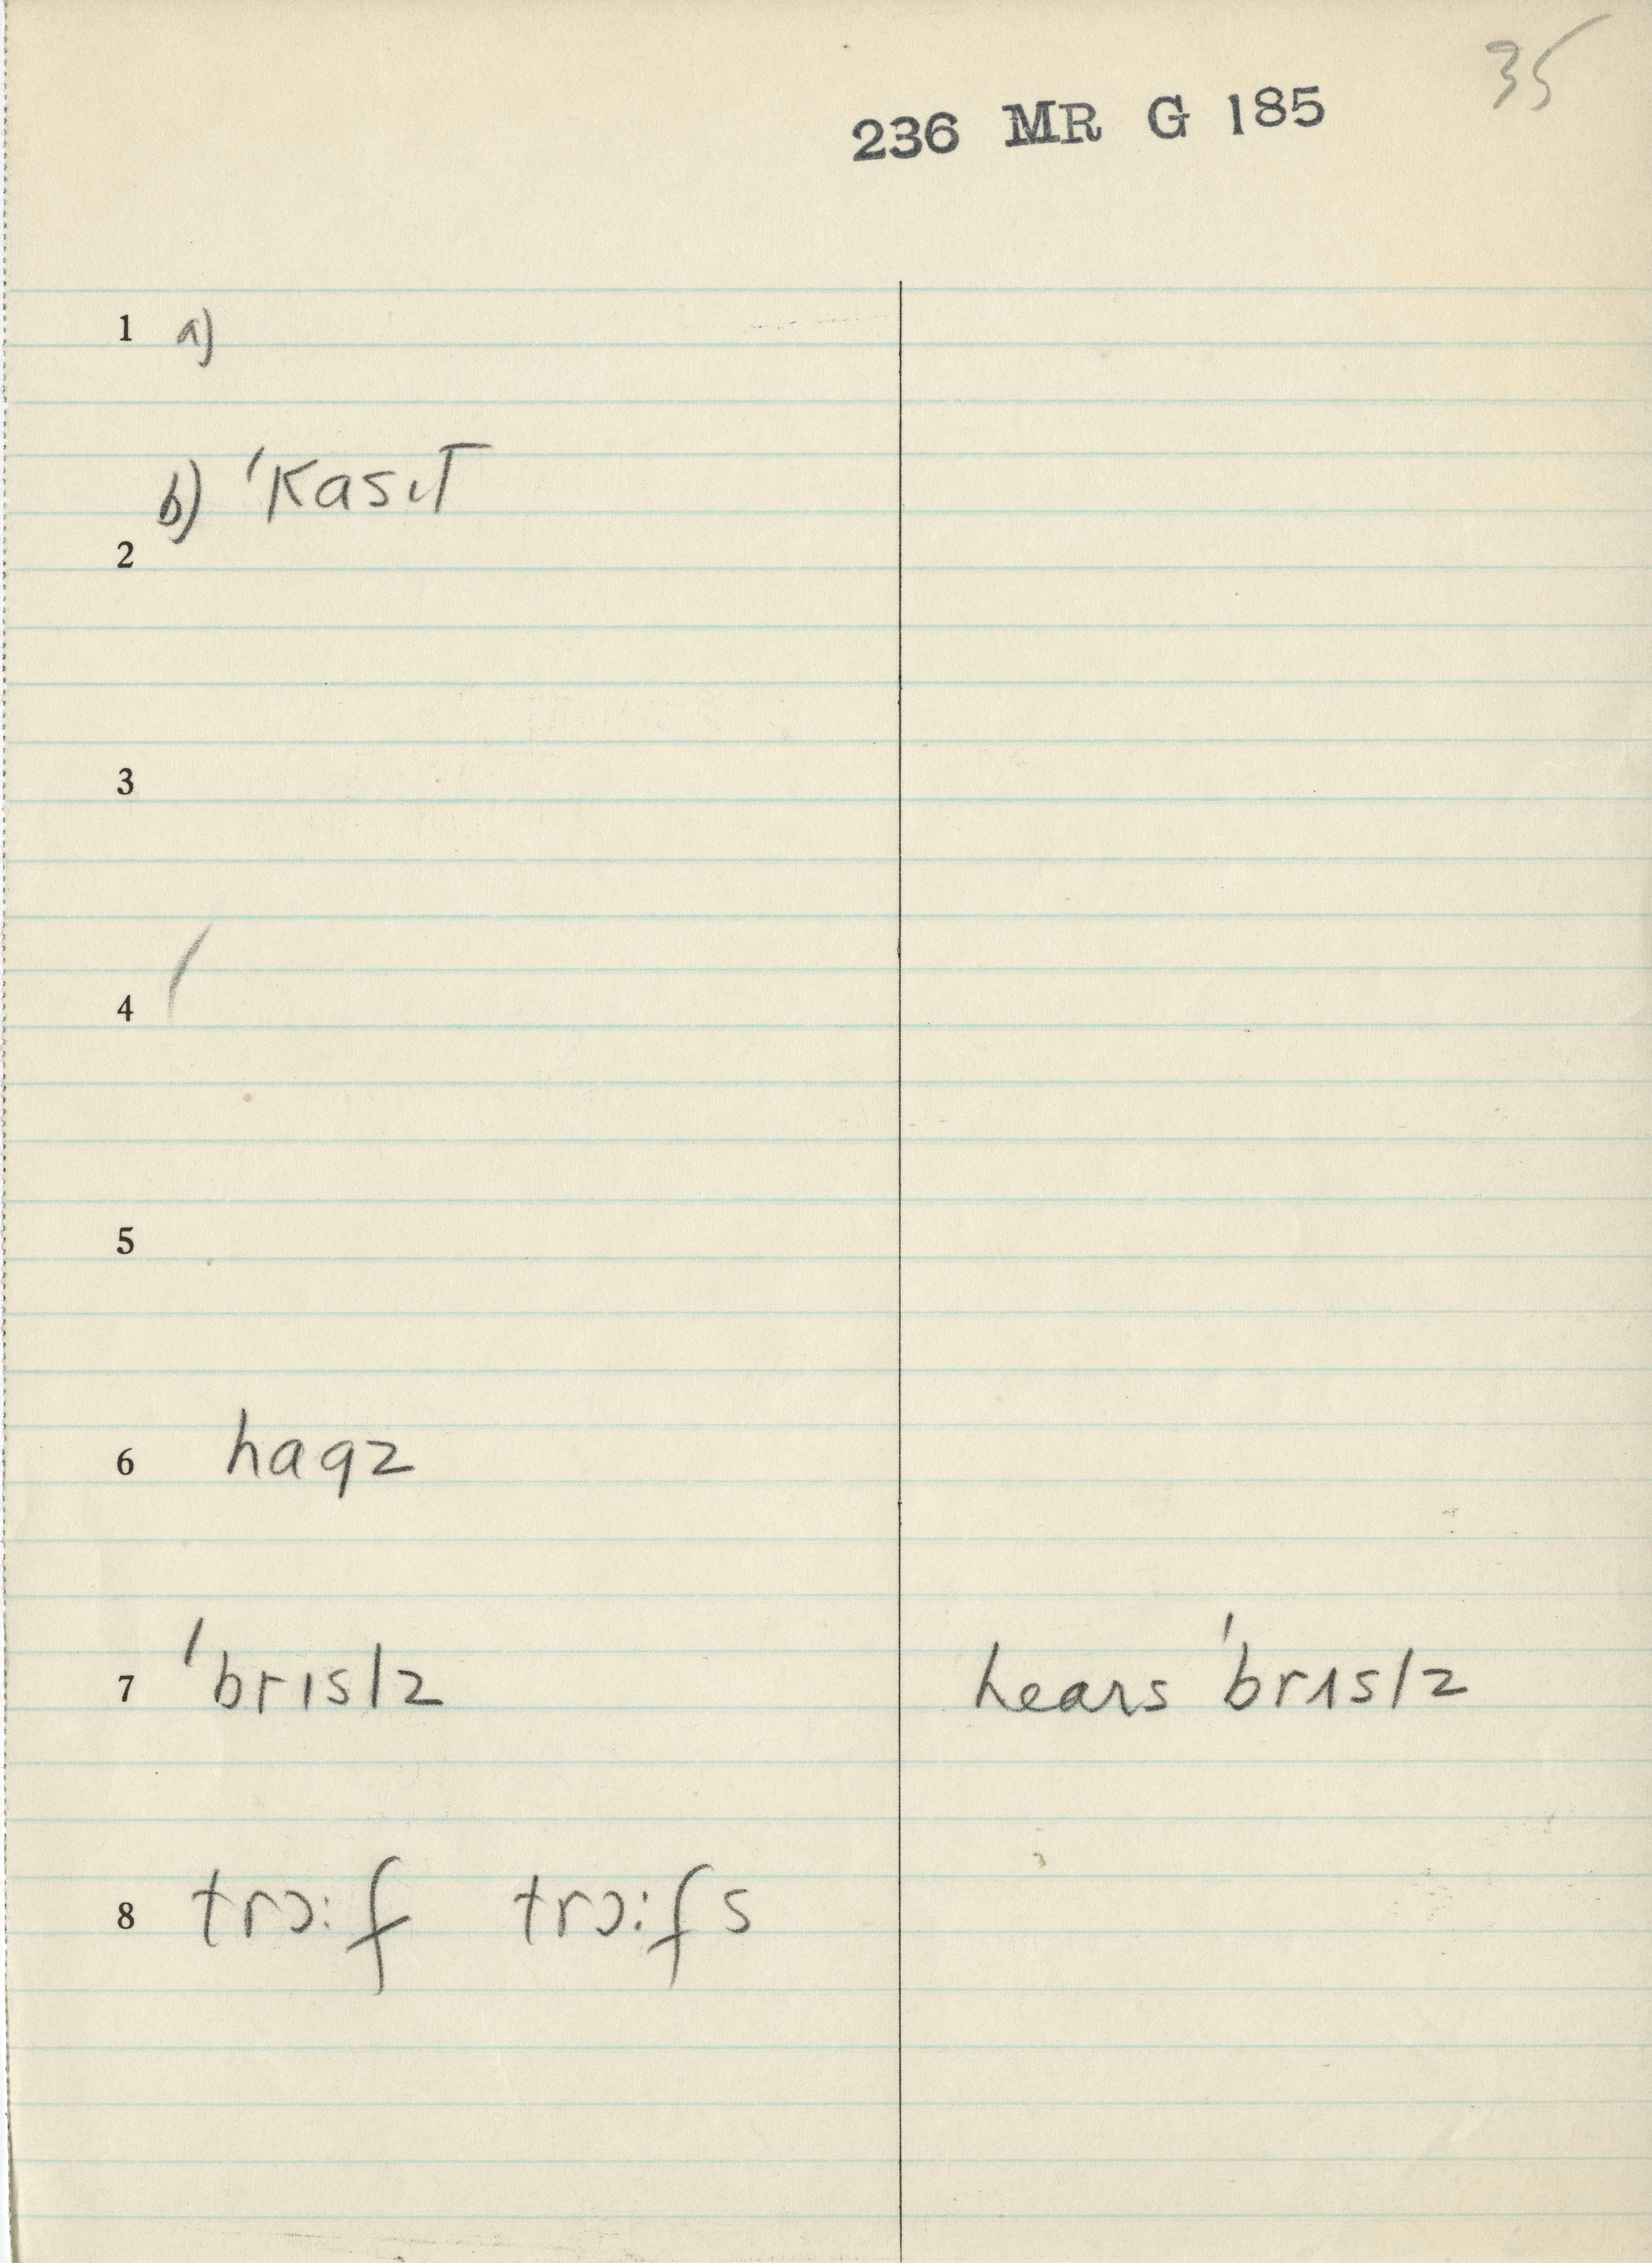 35
236 MR G 185
1 a)
b) 'kasɪt
2
3
4
5
6 hagz
7 'brɪslz hears 'brɪslz
8 trɔːf trɔːfs